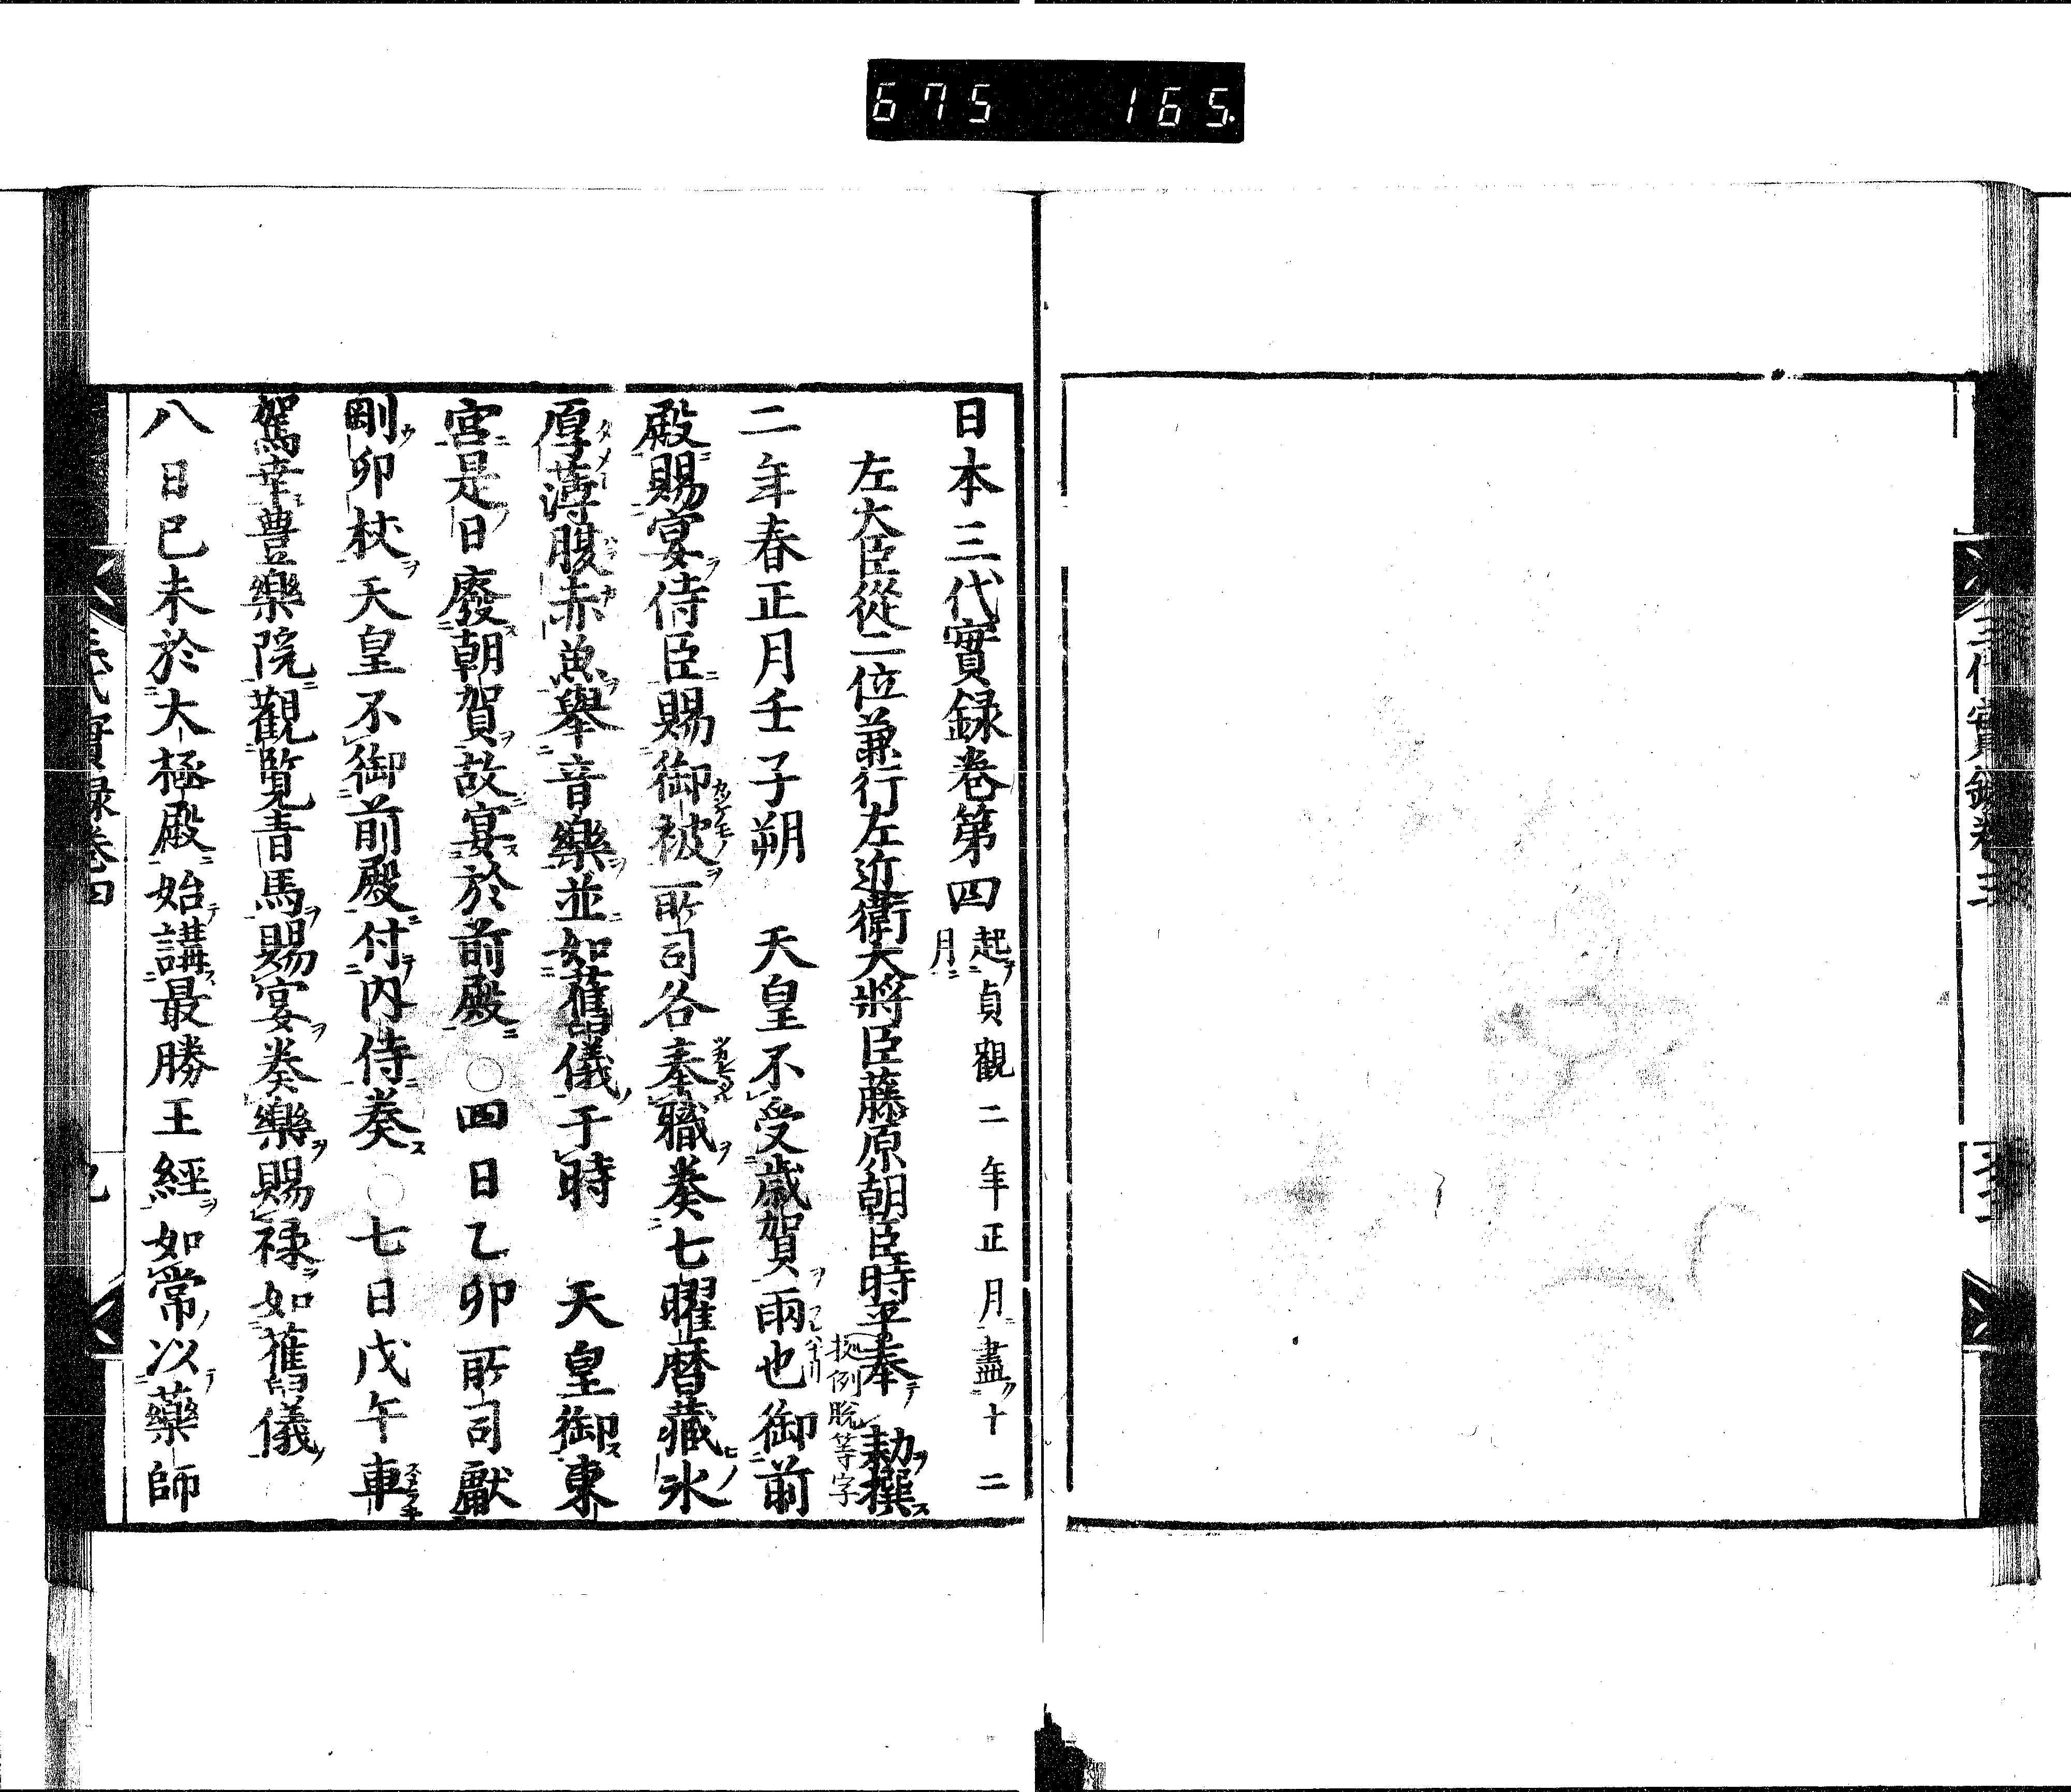 675 165
日本三代實録卷第四 起貞觀二年正月盡十二月
左大臣從二位兼行左近衛大將臣藤原朝臣時平奉 勅撰
二年春正月壬子朔 天皇不受歳賀雨也御前
殿賜宴侍臣賜御被所司各奉職奏七曜暦藏氷
厚薄腹赤魚舉音樂並如舊儀于時 天皇御東
宮是日廢朝賀故宴於前殿○四日乙卯所司獻
剛卯杖天皇不御前殿付内侍奏○七日戊午車
駕幸豊樂院觀覧青馬賜宴奏樂賜禄如舊儀
八日已未於大極殿始講最勝王經如常以藥師
三代實録卷四